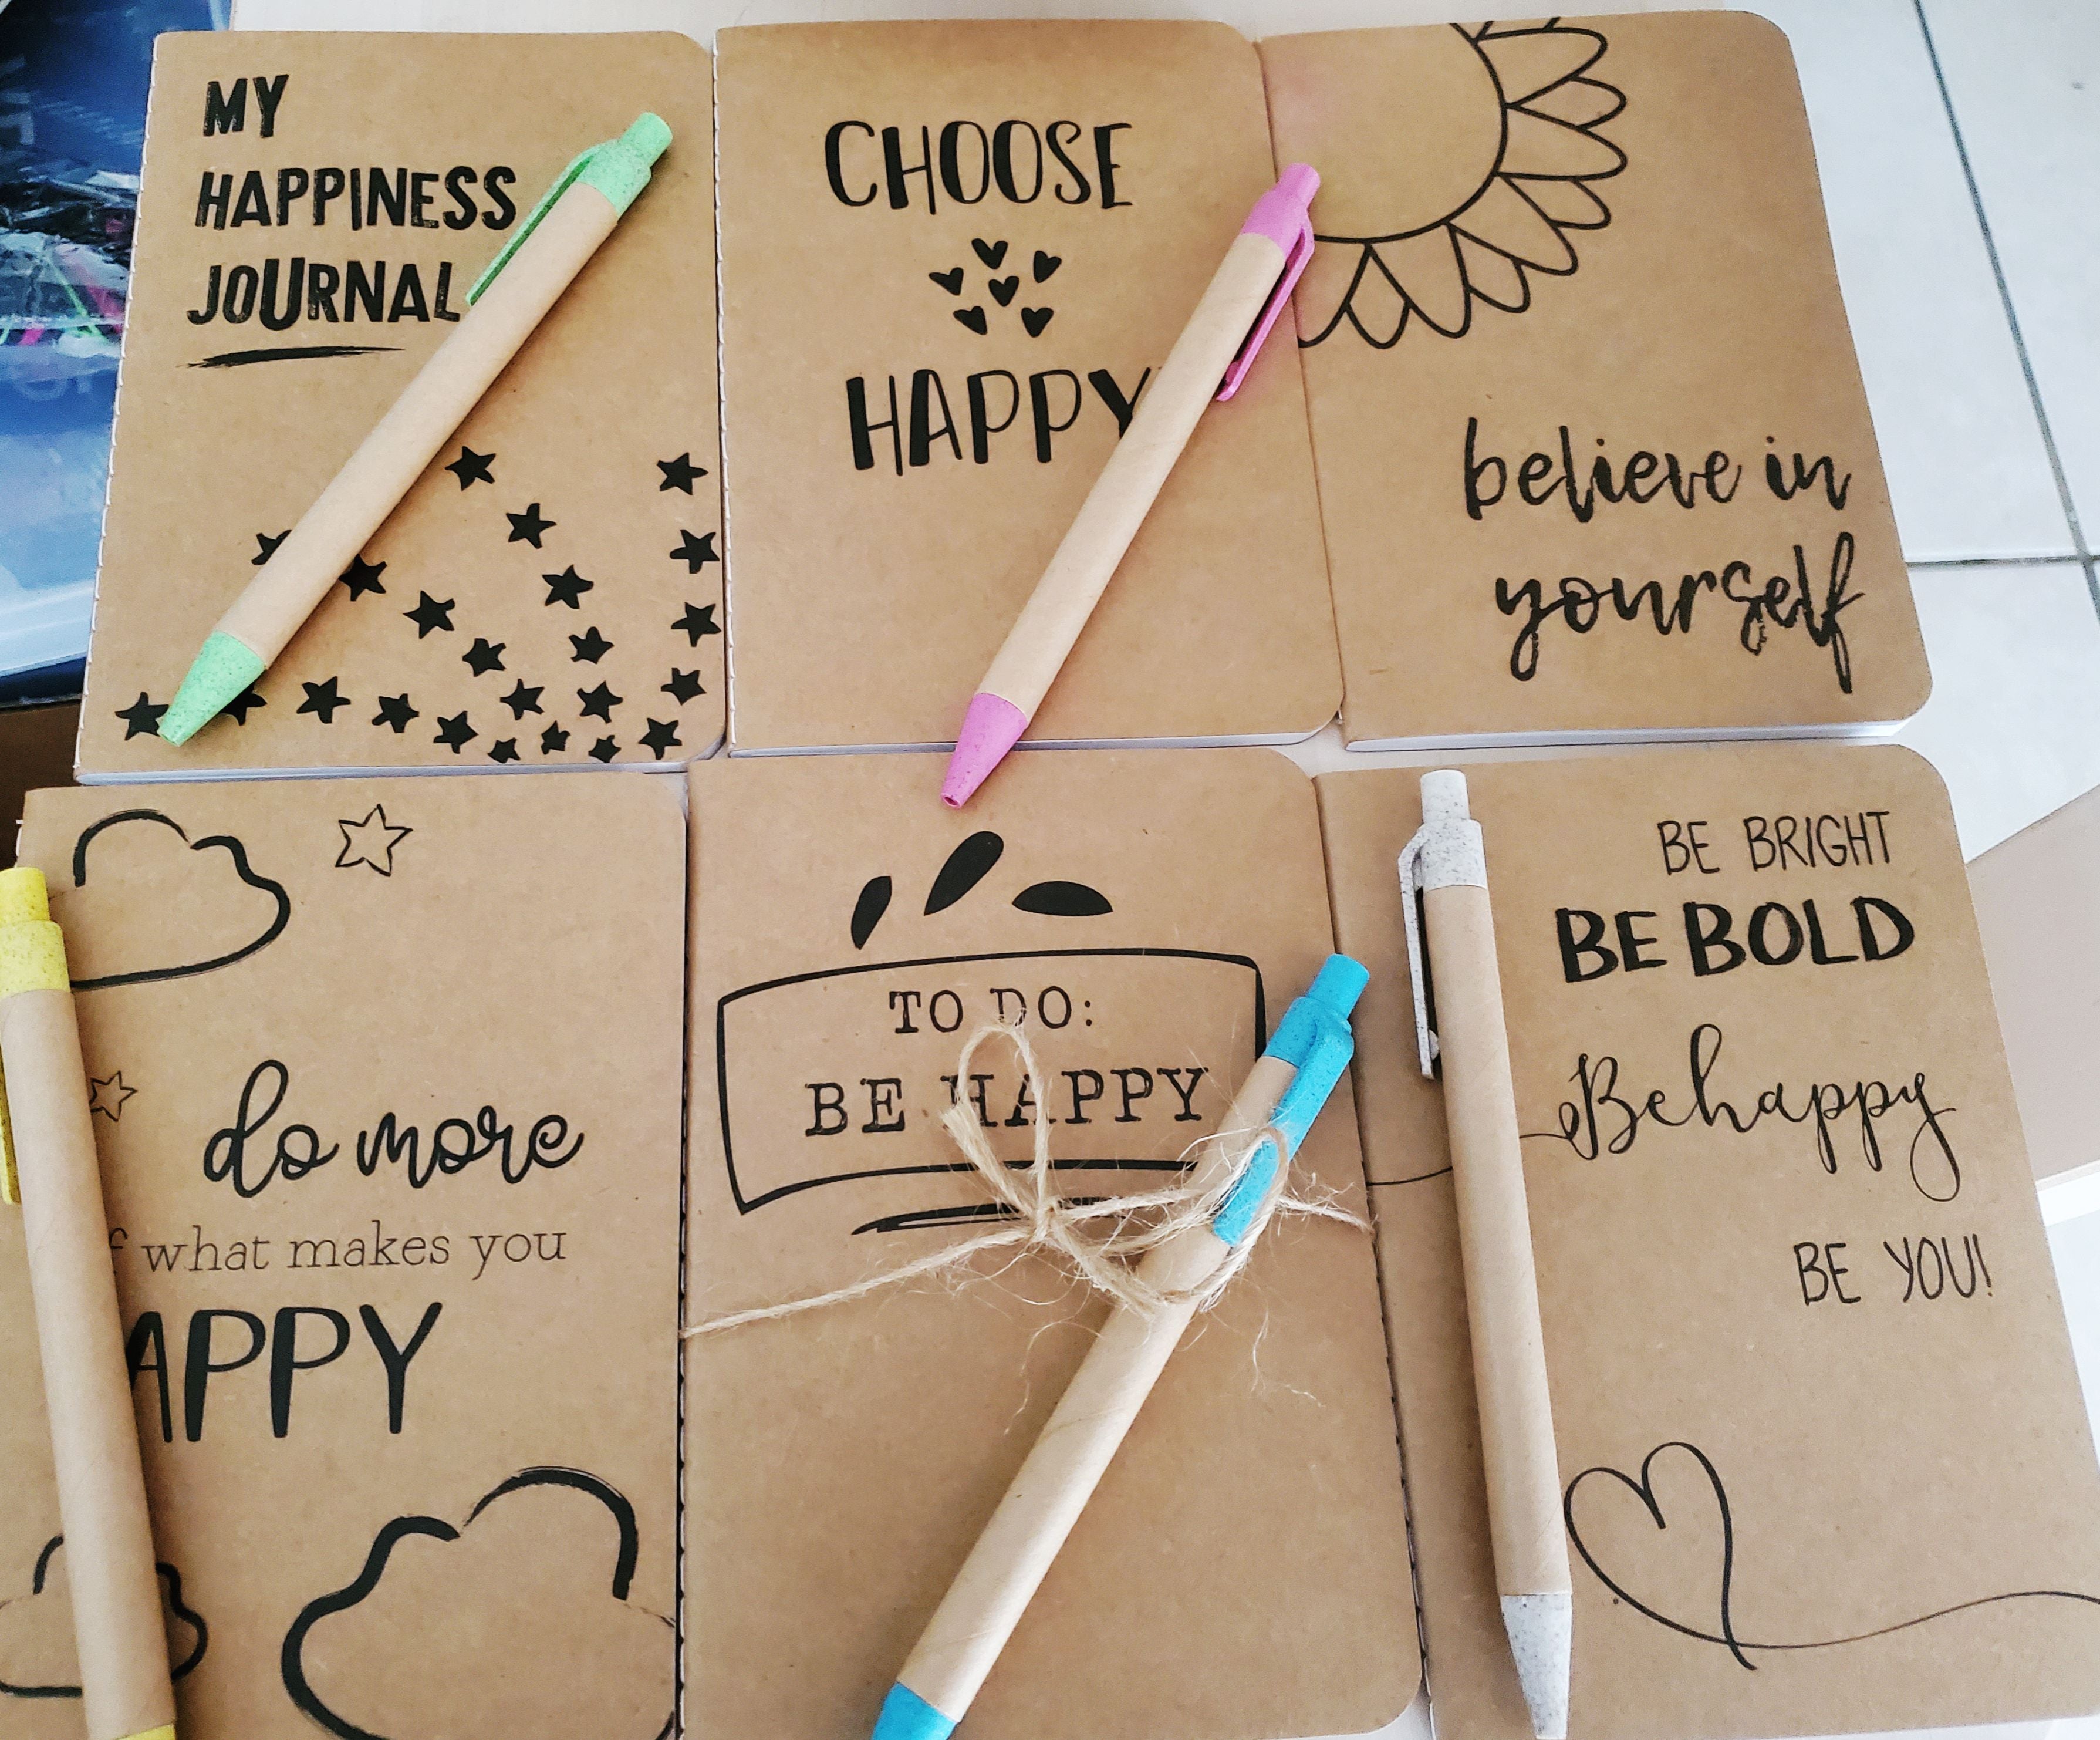 MY
HAPPINESS
JOURNAL
CHOOSE
HAPPY
believe in
yourself
do more
f what makes you
APPY
TO DO:
BE HAPPY
BE BRIGHT
BE BOLD
Be happy
BE YOU!